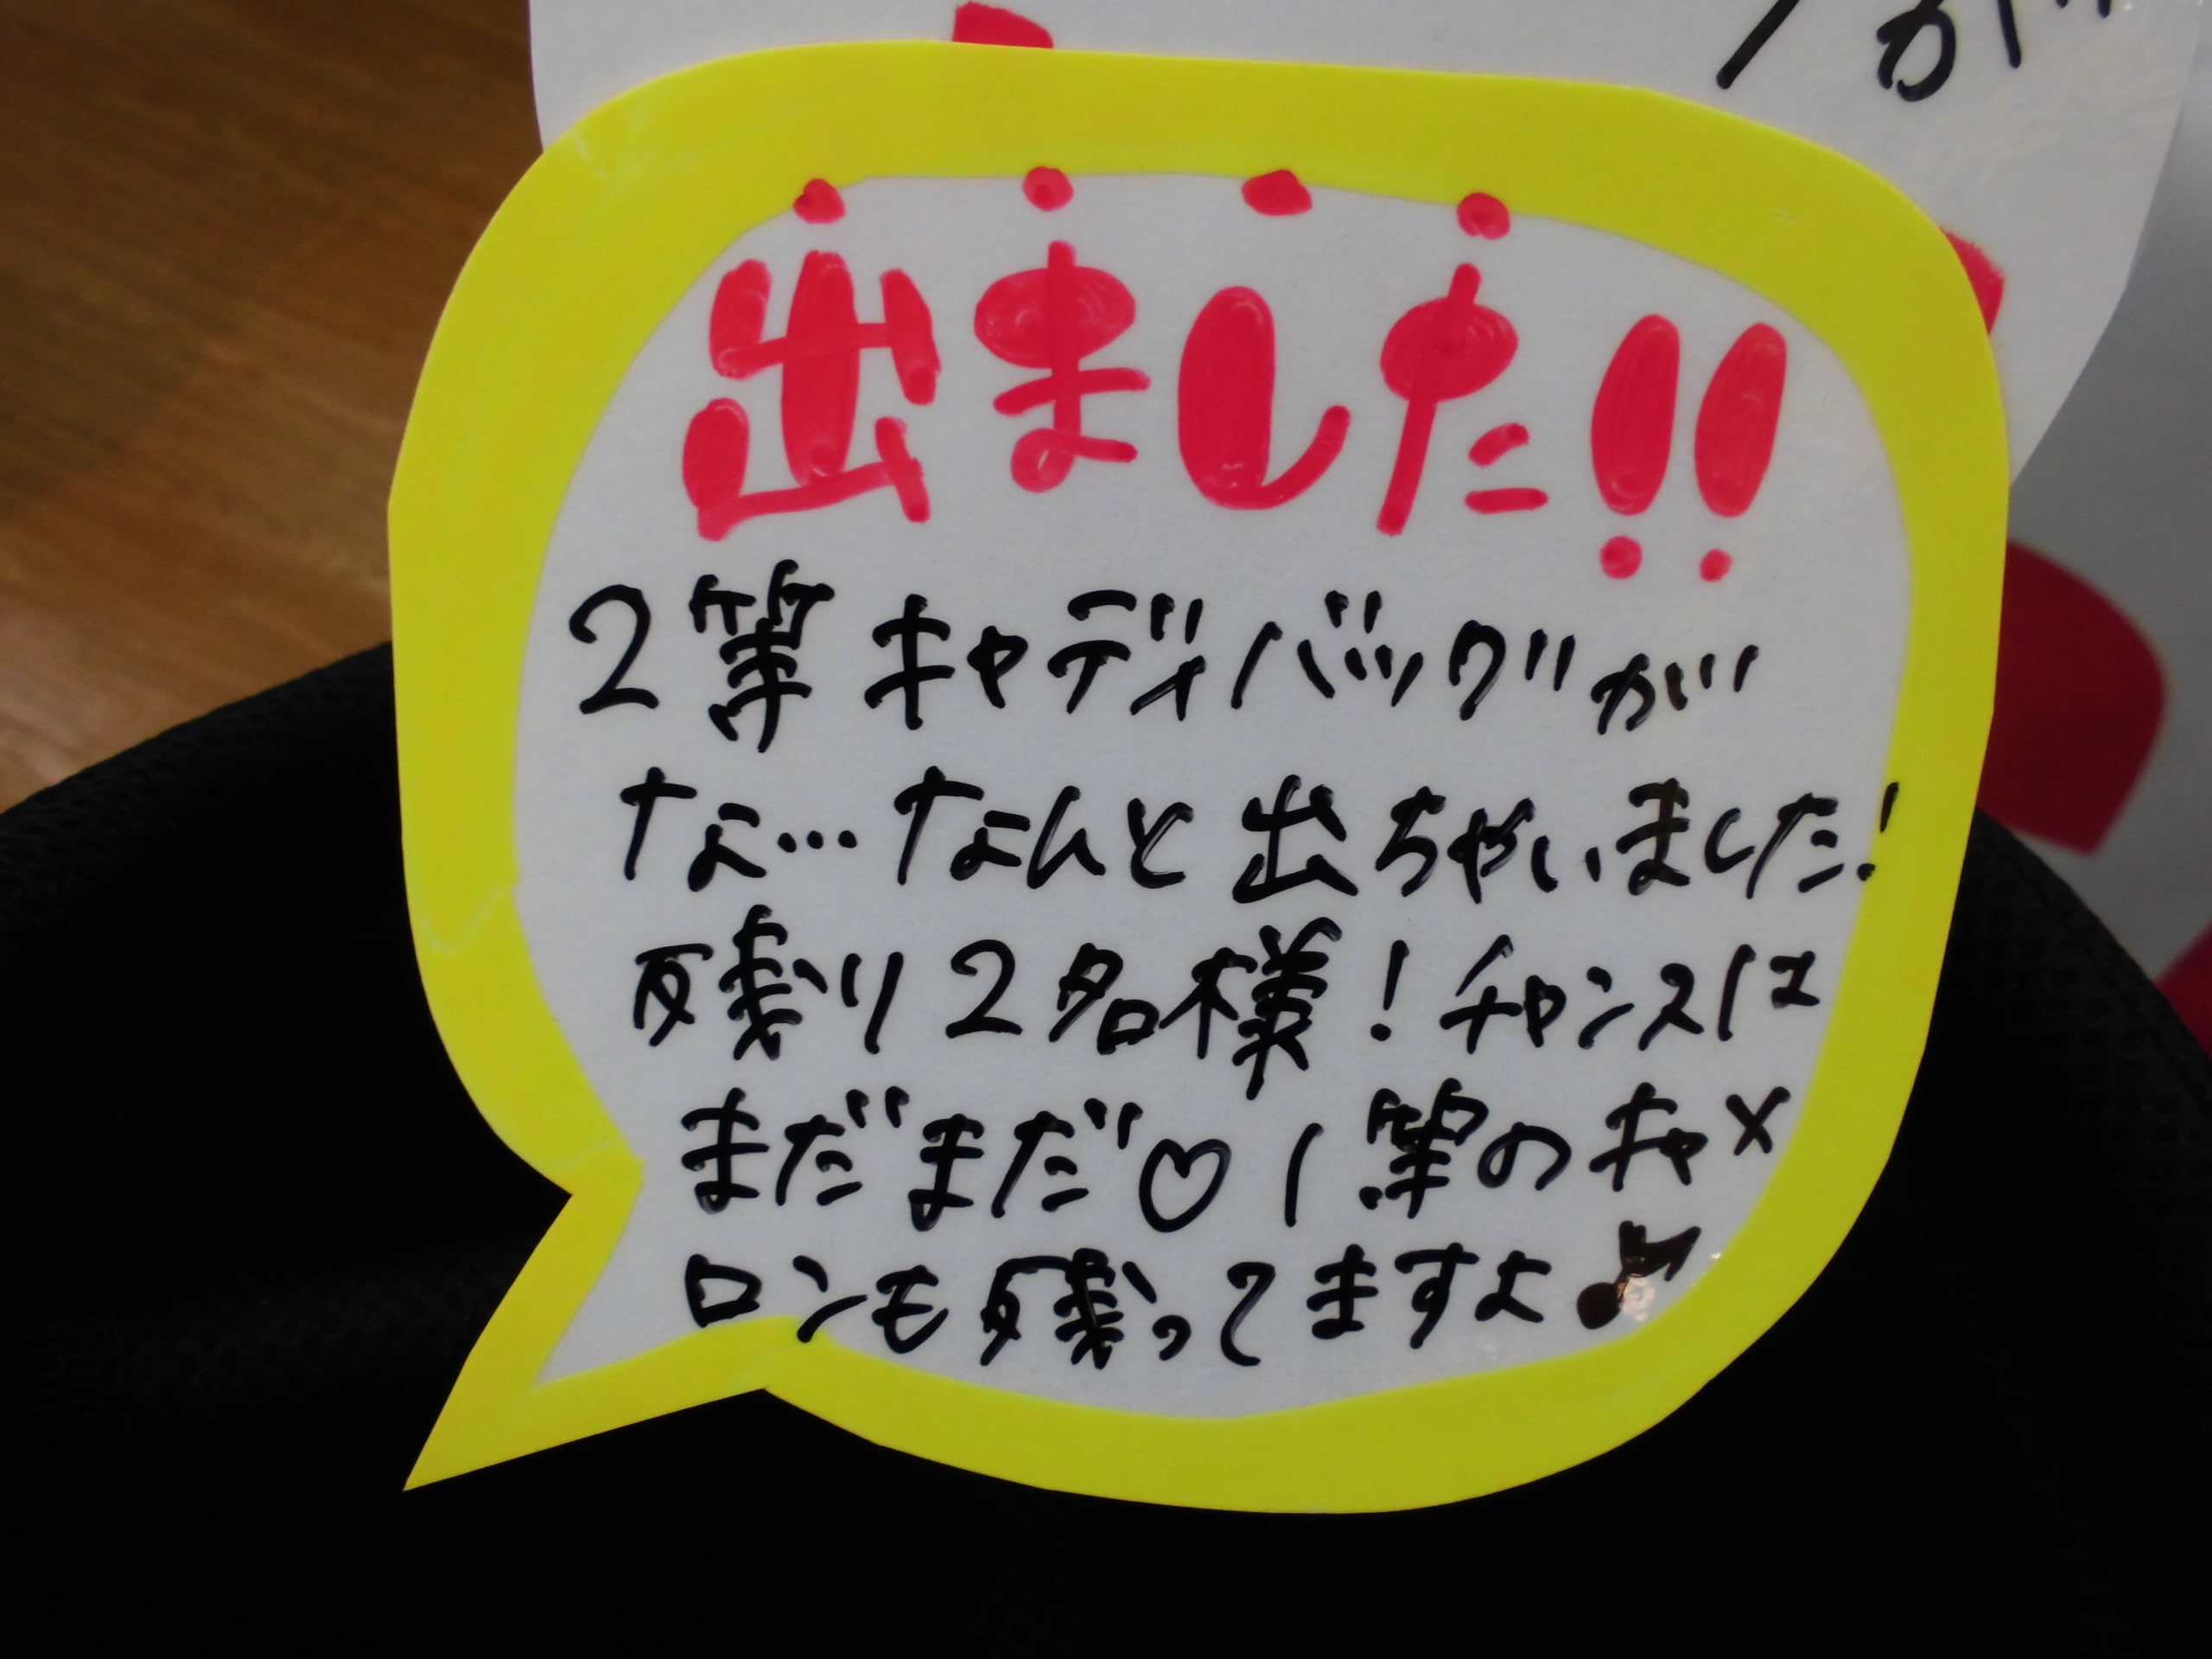 出ました!!
2等キャディバッグが
な…なんと出ちゃいました!
残り2名様!チャンスは
まだまだ♡1等のキャメ
ロンも残ってますよ♪